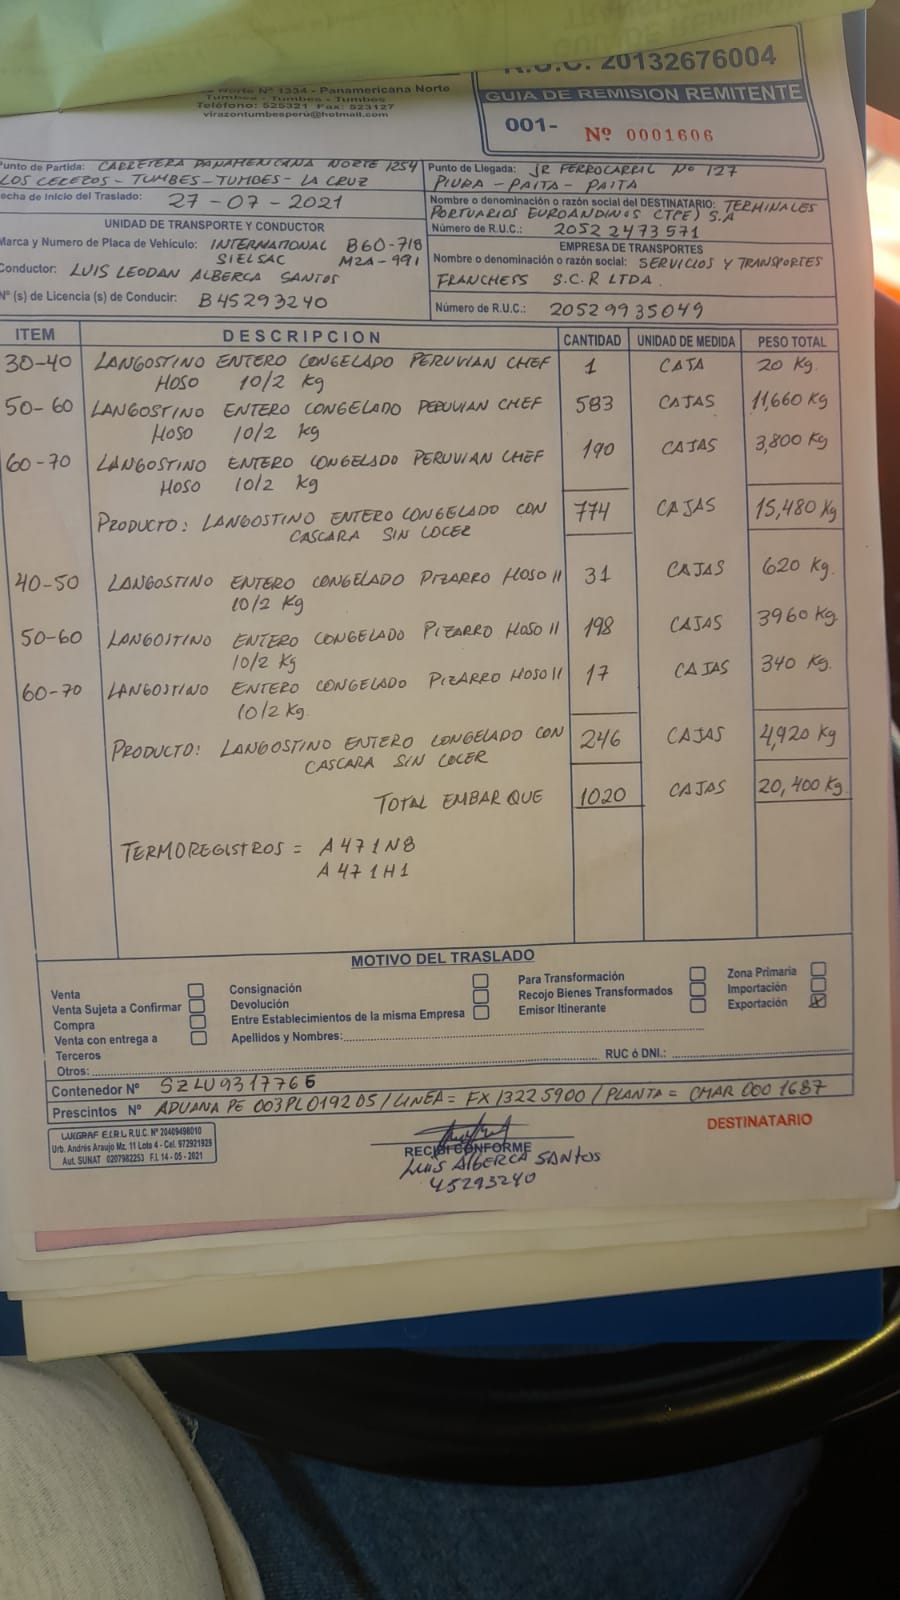 R.U.C. 20132676004
Norte Nº 1334 - Panamericana Norte
Tumbes - Tumbes - Tumbes
Teléfono: 525321 Fax: 523127
virazontumbesperu@hotmail.com
GUIA DE REMISION REMITENTE
001- Nº 0001606
Punto de Partida: CARRETERA PANAMERICANA NORTE 1254
LOS CEREZOS - TUMBES - TUMBES - LA CRUZ
Punto de Llegada: JR FERROCARRIL Nº 127
PIURA - PAITA - PAITA
Fecha de Inicio del Traslado: 27-07-2021
Nombre o denominación o razón social del DESTINATARIO: TERMINALES
PORTUARIOS EUROANDINOS (TPE) S.A
Número de R.U.C.: 20522473571
UNIDAD DE TRANSPORTE Y CONDUCTOR
Marca y Numero de Placa de Vehículo: INTERNATIONAL B60-718
SIELSAC M2A-991
Conductor: LUIS LEODAN ALBERCA SANTOS
Nº (s) de Licencia (s) de Conducir: B45293240
EMPRESA DE TRANSPORTES
Nombre o denominación o razón social: SERVICIOS Y TRANSPORTES
FRANCHESS S.C.R LTDA.
Número de R.U.C.: 20529935049
ITEM DESCRIPCION CANTIDAD UNIDAD DE MEDIDA PESO TOTAL
30-40 LANGOSTINO ENTERO CONGELADO PERUVIAN CHEF 1 CAJA 20 Kg.
HOSO 10/2 Kg
50-60 LANGOSTINO ENTERO CONGELADO PERUVIAN CHEF 583 CAJAS 11,660 Kg
HOSO 10/2 Kg
60-70 LANGOSTINO ENTERO CONGELADO PERUVIAN CHEF 190 CAJAS 3,800 Kg
HOSO 10/2 Kg
PRODUCTO: LANGOSTINO ENTERO CONGELADO CON 774 CAJAS 15,480 Kg
CASCARA SIN COCER
40-50 LANGOSTINO ENTERO CONGELADO PIZARRO HOSO II 31 CAJAS 620 Kg.
10/2 Kg
50-60 LANGOSTINO ENTERO CONGELADO PIZARRO HOSO II 198 CAJAS 3960 Kg
10/2 Kg
60-70 LANGOSTINO ENTERO CONGELADO PIZARRO HOSO II 17 CAJAS 340 Kg.
10/2 Kg.
PRODUCTO: LANGOSTINO ENTERO CONGELADO CON 246 CAJAS 4,920 Kg
CASCARA SIN COCER
TOTAL EMBARQUE 1020 CAJAS 20,400 Kg.
TERMOREGISTROS = A471N8
A471H1
MOTIVO DEL TRASLADO
Venta
Venta Sujeta a Confirmar
Compra
Venta con entrega a
Terceros
Consignación
Devolución
Entre Establecimientos de la misma Empresa
Para Transformación
Recojo Bienes Transformados
Emisor Itinerante
Zona Primaria
Importación
Exportación X
Apellidos y Nombres:
Otros: RUC ó DNI.:
Contenedor Nº SZLU9317766
Prescintos Nº ADUANA PE 003PL019205 / LINEA = FX13225900 / PLANTA = CMAR 000 1687
LUIGRAF E.I.R.L R.U.C. Nº 20409498010
Urb. Andrés Araujo Mz. 11 Lote 4 - Cel. 972921929
Aut. SUNAT 0207982253 F.I. 14 - 05 - 2021
RECIBI CONFORME
LUIS ALBERCA SANTOS
45293240
DESTINATARIO